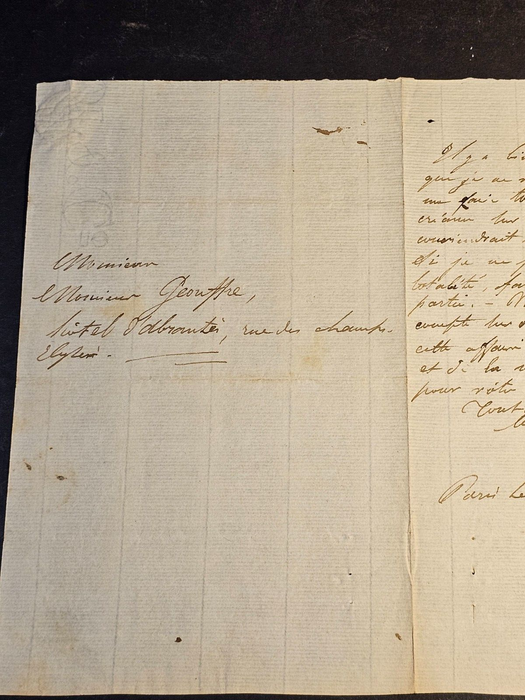 Monsieur
Monsieur Geouffre,
hôtel d'abrantès, rue des champs-
Élysées.
Il y a bi
que je ne
une
créance sur
conviendrait
Si je ne p
totalité,
partie. -
compte sur
cette affaire
et de la
pour
Tout
Paris le